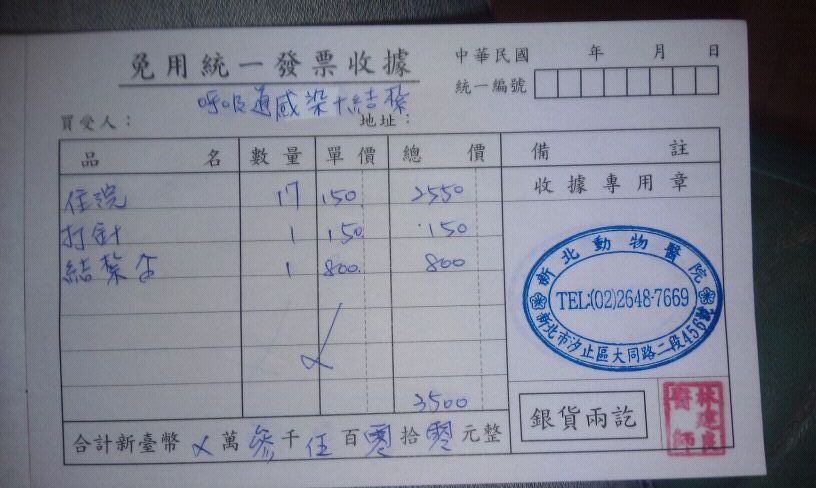 免用統一發票收據
中華民國 年 月 日
統一編號
呼吸道感染+結紮
買受人： 地址：
品名 數量 單價 總價 備註
收據專用章
住院 17 150 2550
打針 1 150 150
結紮 1 800 800
新北動物醫院
TEL:(02)2648-7669
新北市汐止區大同路二段456號
3500
銀貨兩訖
林建良
醫師
合計新臺幣 ㄨ 萬 參 千 伍 百 零 拾 零 元整